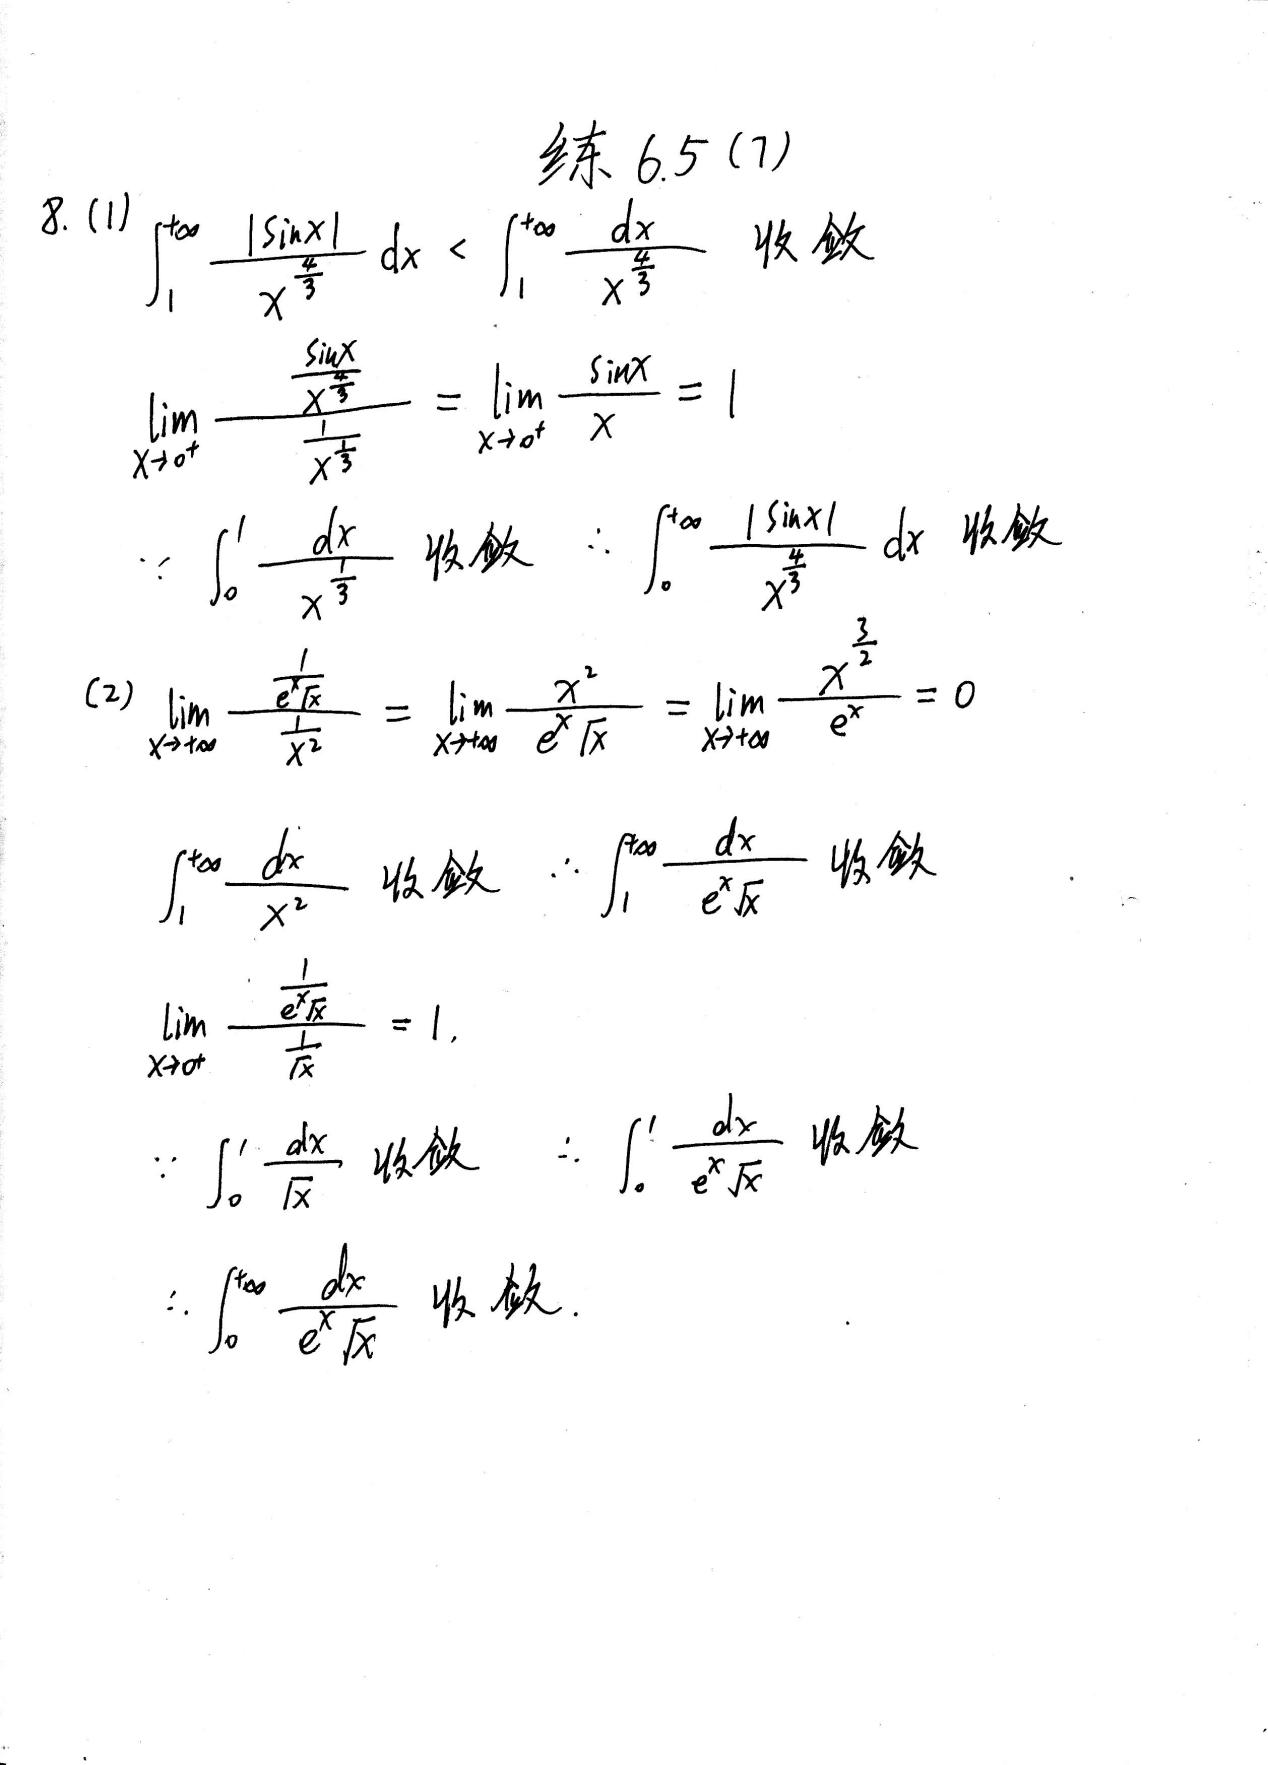 练 6.5 (7)
8. (1) $\int_1^{+\infty} \frac{|\sin x|}{x^{\frac{4}{3}}} dx < \int_1^{+\infty} \frac{dx}{x^{\frac{4}{3}}}$ 收敛
$\lim_{x \to 0^+} \frac{\frac{\sin x}{x^{\frac{4}{3}}}}{\frac{1}{x^{\frac{1}{3}}}} = \lim_{x \to 0^+} \frac{\sin x}{x} = 1$
∵ $\int_0^1 \frac{dx}{x^{\frac{1}{3}}}$ 收敛 ∴ $\int_0^{+\infty} \frac{|\sin x|}{x^{\frac{4}{3}}} dx$ 收敛
(2) $\lim_{x \to +\infty} \frac{\frac{1}{e^x \sqrt{x}}}{\frac{1}{x^2}} = \lim_{x \to +\infty} \frac{x^2}{e^x \sqrt{x}} = \lim_{x \to +\infty} \frac{x^{\frac{3}{2}}}{e^x} = 0$
$\int_1^{+\infty} \frac{dx}{x^2}$ 收敛 ∴ $\int_1^{+\infty} \frac{dx}{e^x \sqrt{x}}$ 收敛
$\lim_{x \to 0^+} \frac{\frac{1}{e^x \sqrt{x}}}{\frac{1}{\sqrt{x}}} = 1.$
∵ $\int_0^1 \frac{dx}{\sqrt{x}}$ 收敛 ∴ $\int_0^1 \frac{dx}{e^x \sqrt{x}}$ 收敛
∴ $\int_0^{+\infty} \frac{dx}{e^x \sqrt{x}}$ 收敛.